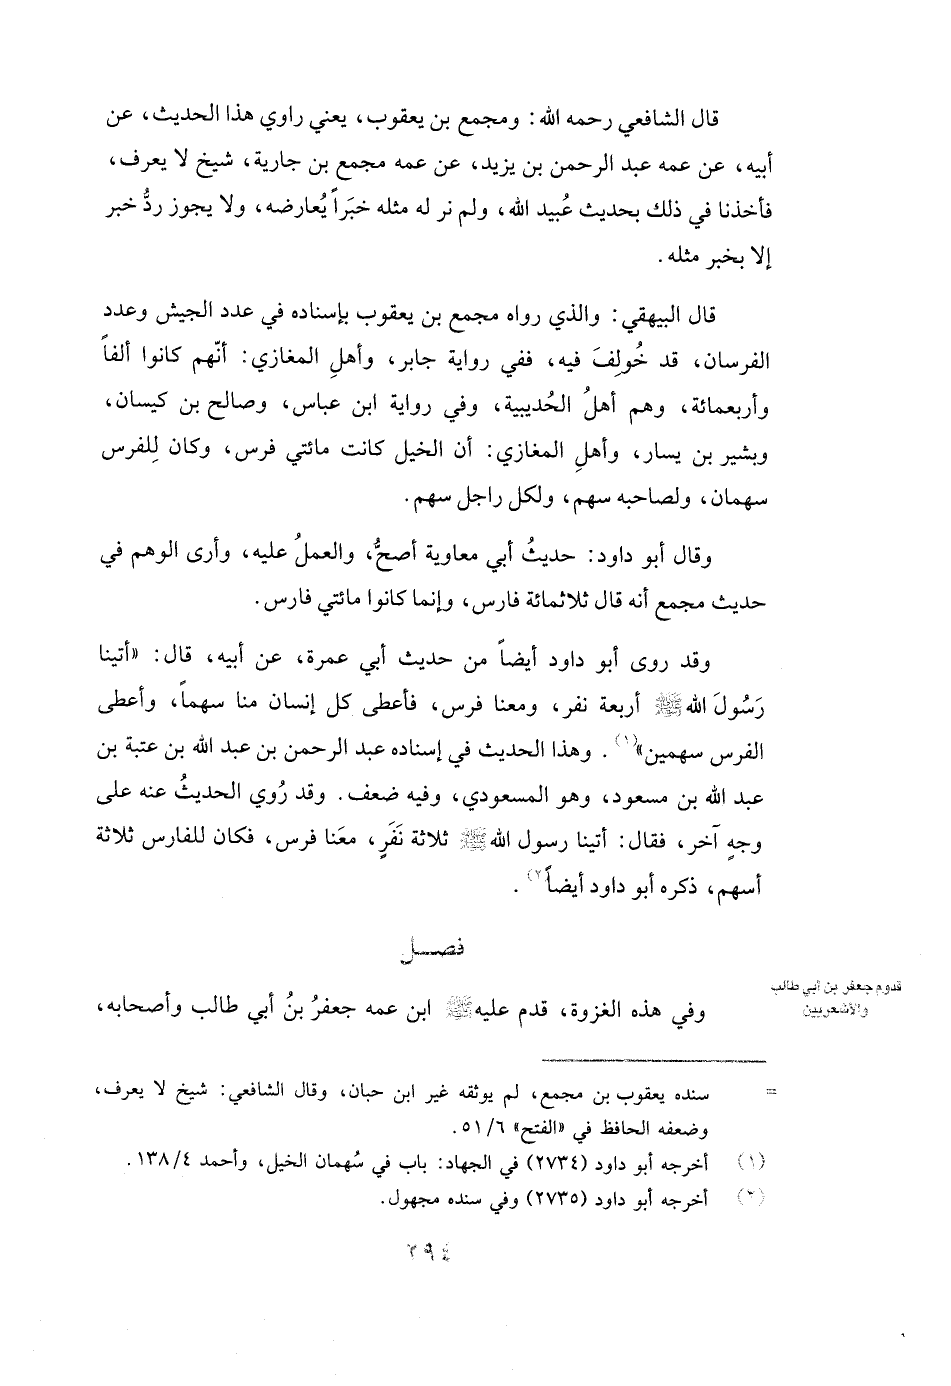 قال الشافعي رحمه الله: ومجمع بن يعقوب، يعني راوي هذا الحديث، عن
أبيه، عن عمه عبد الرحمن بن يزيد، عن عمه مجمع بن جارية، شيخ لا يعرف،
فأخذنا في ذلك بحديث عُبيد الله، ولم نر له مثله خبَراً يُعارضه، ولا يجوز ردُّ خبر
إلا بخبر مثله.
قال البيهقي: والذي رواه مجمع بن يعقوب بإسناده في عدد الجيش وعدد
الفرسان، قد خُولِفَ فيه، ففي رواية جابر، وأهلِ المغازي: أنّهم كانوا ألفاً
وأربعمائة، وهم أهلُ الحُديبية، وفي رواية ابن عباس، وصالح بن كيسان،
وبشير بن يسار، وأهلِ المغازي: أن الخيل كانت مائتي فرس، وكان لِلفرس
سهمان، ولصاحبه سهم، ولكل راجل سهم.
وقال أبو داود: حديثُ أبي معاوية أصحُّ، والعملُ عليه، وأرى الوهم في
حديث مجمع أنه قال ثلاثمائة فارس، وإنما كانوا مائتي فارس.
وقد روى أبو داود أيضاً من حديث أبي عمرة، عن أبيه، قال: «أتينا
رَسُولَ الله ﷺ أربعة نفر، ومعنا فرس، فأعطى كل إنسان منا سهماً، وأعطى
الفرس سهمين»(١). وهذا الحديث في إسناده عبد الرحمن بن عبد الله بن عتبة بن
عبد الله بن مسعود، وهو المسعودي، وفيه ضعف. وقد رُوي الحديثُ عنه على
وجهٍ آخر، فقال: أتينا رسول الله ﷺ ثلاثة نَفَرٍ، معَنا فرس، فكان للفارس ثلاثة
أسهم، ذكره أبو داود أيضاً(٢).
فصل
قدوم جعفر بن أبي طالب
والأشعريين
وفي هذه الغزوة، قدم عليه ﷺ ابن عمه جعفرُ بنُ أبي طالب وأصحابه،
= سنده يعقوب بن مجمع، لم يوثقه غير ابن حبان، وقال الشافعي: شيخ لا يعرف،
وضعفه الحافظ في «الفتح» ٥١/٦.
(١) أخرجه أبو داود (٢٧٣٤) في الجهاد: باب في سُهمان الخيل، وأحمد ١٣٨/٤.
(٢) أخرجه أبو داود (٢٧٣٥) وفي سنده مجهول.
٢٩٤